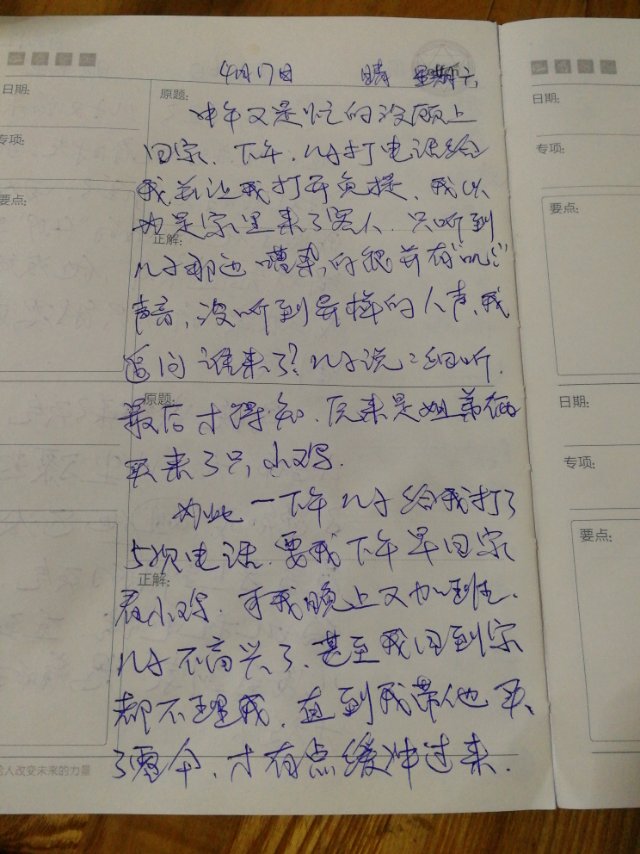 4月17日 晴 星期六
日期:
原题:
日期:
中午又是忙的没顾上
专项:
专项:
回家、下午、儿子打电话给
我并让我打开免提、我以
要点:
要点:
为是家里来了客人、只听到
正解:
儿子那边嘈杂的很并有"叽"
声音,没听到异样的人声、我
追问谁来了?儿子说:细听、
原题:
日期:
最后才得知、原来是姐弟俩
买来了只小鸡.
专项:
为此一下午儿子给我打了
要点:
5次电话、要我下午早回家
正解:
看小鸡、可我晚上又加班、
儿子不高兴了、甚至我回到家
都不理我、直到我带他买
了零食、才有点缓冲过来.
人改变未来的力量